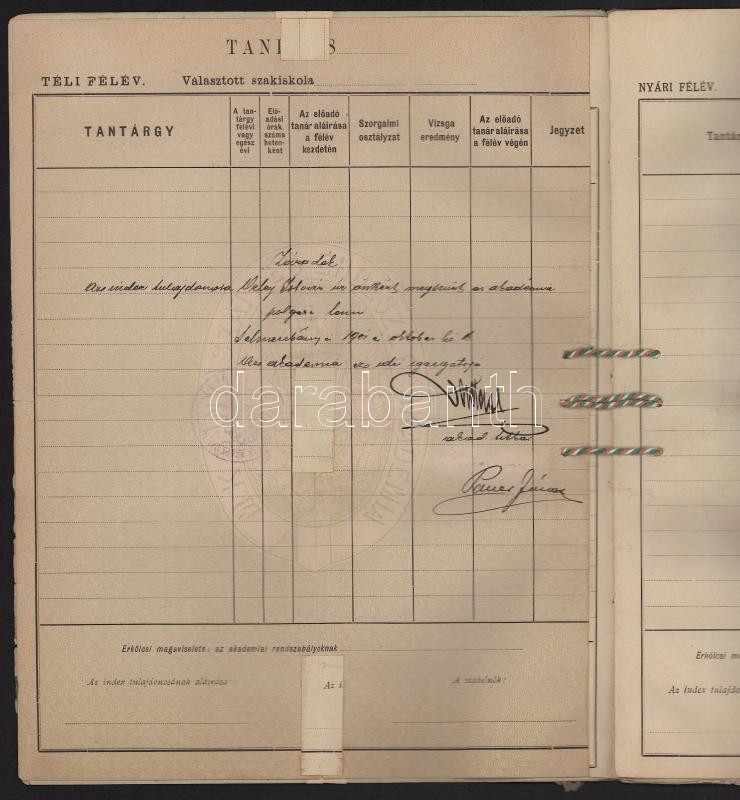 TÉLI FÉLÉV. Választott szakiskola
TANTÁRGY
A tan-
tárgy
félévi
vagy
egész
évi
Elő-
adási
órák
száma
heten-
ként
Az előadó
tanár aláírása
a félév
kezdetén
Szorgalmi
osztályzat
Vizsga
eredmény
Az előadó
tanár aláírása
a félév végén
Jegyzet
Záradék
Az index tulajdonosa István úr önként megszünt az akadémia
polgára lenni
Selmecbánya 1901 október hó
akadémia ez idei igazgatója
akad. titkár
János
darabanth
Erkölcsi magaviselete: az akadémiai rendszabályoknak
Az index tulajdonosának aláírása:
A szakelnök:
NYÁRI FÉLÉV.
Tantár
Erkölcsi m
Az index tulajd